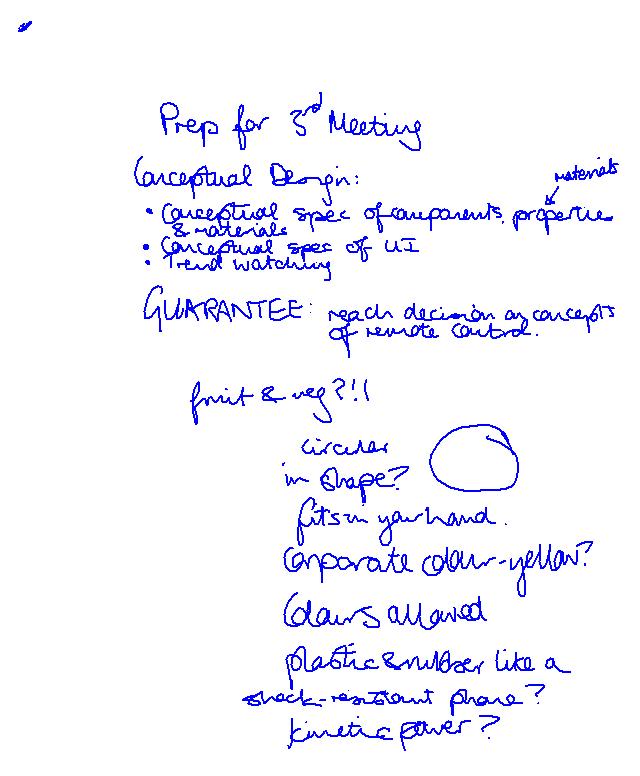 Prep for 3rd Meeting
Conceptual Design:
materials
• Conceptual spec of components, properties
& materials
• Conceptual spec of UI
• Trend watching
GUARANTEE: reach decision on concepts
of remote control.
fruit & veg?!!
circular
in shape?
fits in your hand.
Corporate colour-yellow?
Colours allowed
plastic & rubber like a
shock-resistant phone?
kinetic power?